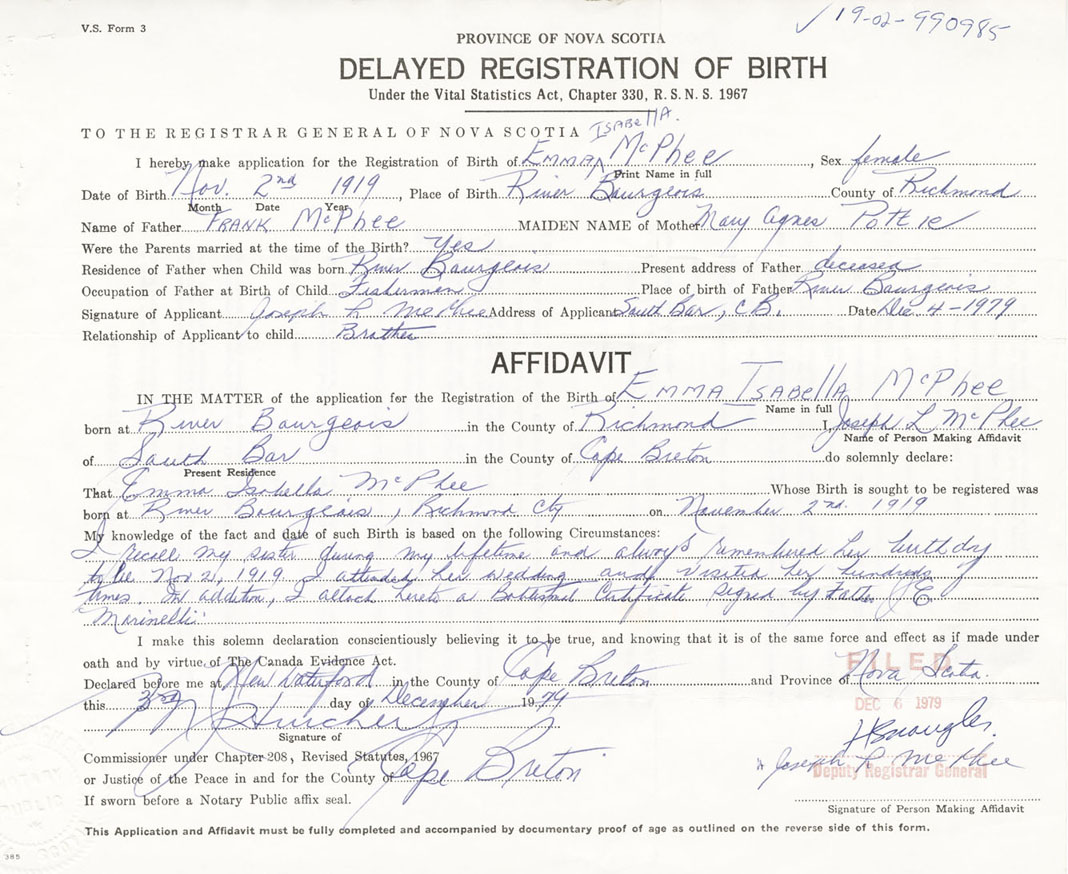 V.S. Form 3
✓ 19-02-990985
PROVINCE OF NOVA SCOTIA
DELAYED REGISTRATION OF BIRTH
Under the Vital Statistics Act, Chapter 330, R.S.N.S. 1967
TO THE REGISTRAR GENERAL OF NOVA SCOTIA
ISABELLA.
I hereby make application for the Registration of Birth of EMMA McPhee, Sex female
Print Name in full
Date of Birth Nov. 2nd 1919, Place of Birth River Bourgeois County of Richmond
Month Date Year
Name of Father FRANK McPhee MAIDEN NAME of Mother Mary Agnes Pottie
Were the Parents married at the time of the Birth? Yes
Residence of Father when Child was born River Bourgeois Present address of Father deceased
Occupation of Father at Birth of Child Fisherman Place of birth of Father River Bourgeois
Signature of Applicant Joseph L McPhee Address of Applicant South Bar, C.B. Date Dec 4-1979
Relationship of Applicant to child Brother
AFFIDAVIT
IN THE MATTER of the application for the Registration of the Birth of EMMA ISABELLA McPhee
Name in full
born at River Bourgeois in the County of Richmond I, Joseph L McPhee
Name of Person Making Affidavit
of South Bar in the County of Cape Breton do solemnly declare:
Present Residence
That Emma Isabella McPhee Whose Birth is sought to be registered was
born at River Bourgeois, Richmond Cty on November 2nd. 1919
My knowledge of the fact and date of such Birth is based on the following Circumstances:
I recall my sister during my lifetime and always remembered her birthday
to be Nov 2, 1919. I attended her wedding and visited her hundreds of
times. In addition, I attach hereto a Baptismal Certificate signed by Father J E
Marinelli.
I make this solemn declaration conscientiously believing it to be true, and knowing that it is of the same force and effect as if made under
oath and by virtue of The Canada Evidence Act.
FILED
Declared before me at New Waterford in the County of Cape Breton and Province of Nova Scotia.
this 3rd day of December 1979
DEC 6 1979
Signature of
Commissioner under Chapter 208, Revised Statutes, 1967
Joseph L McPhee
or Justice of the Peace in and for the County of Cape Breton
Deputy Registrar General
If sworn before a Notary Public affix seal.
Signature of Person Making Affidavit
This Application and Affidavit must be fully completed and accompanied by documentary proof of age as outlined on the reverse side of this form.
385